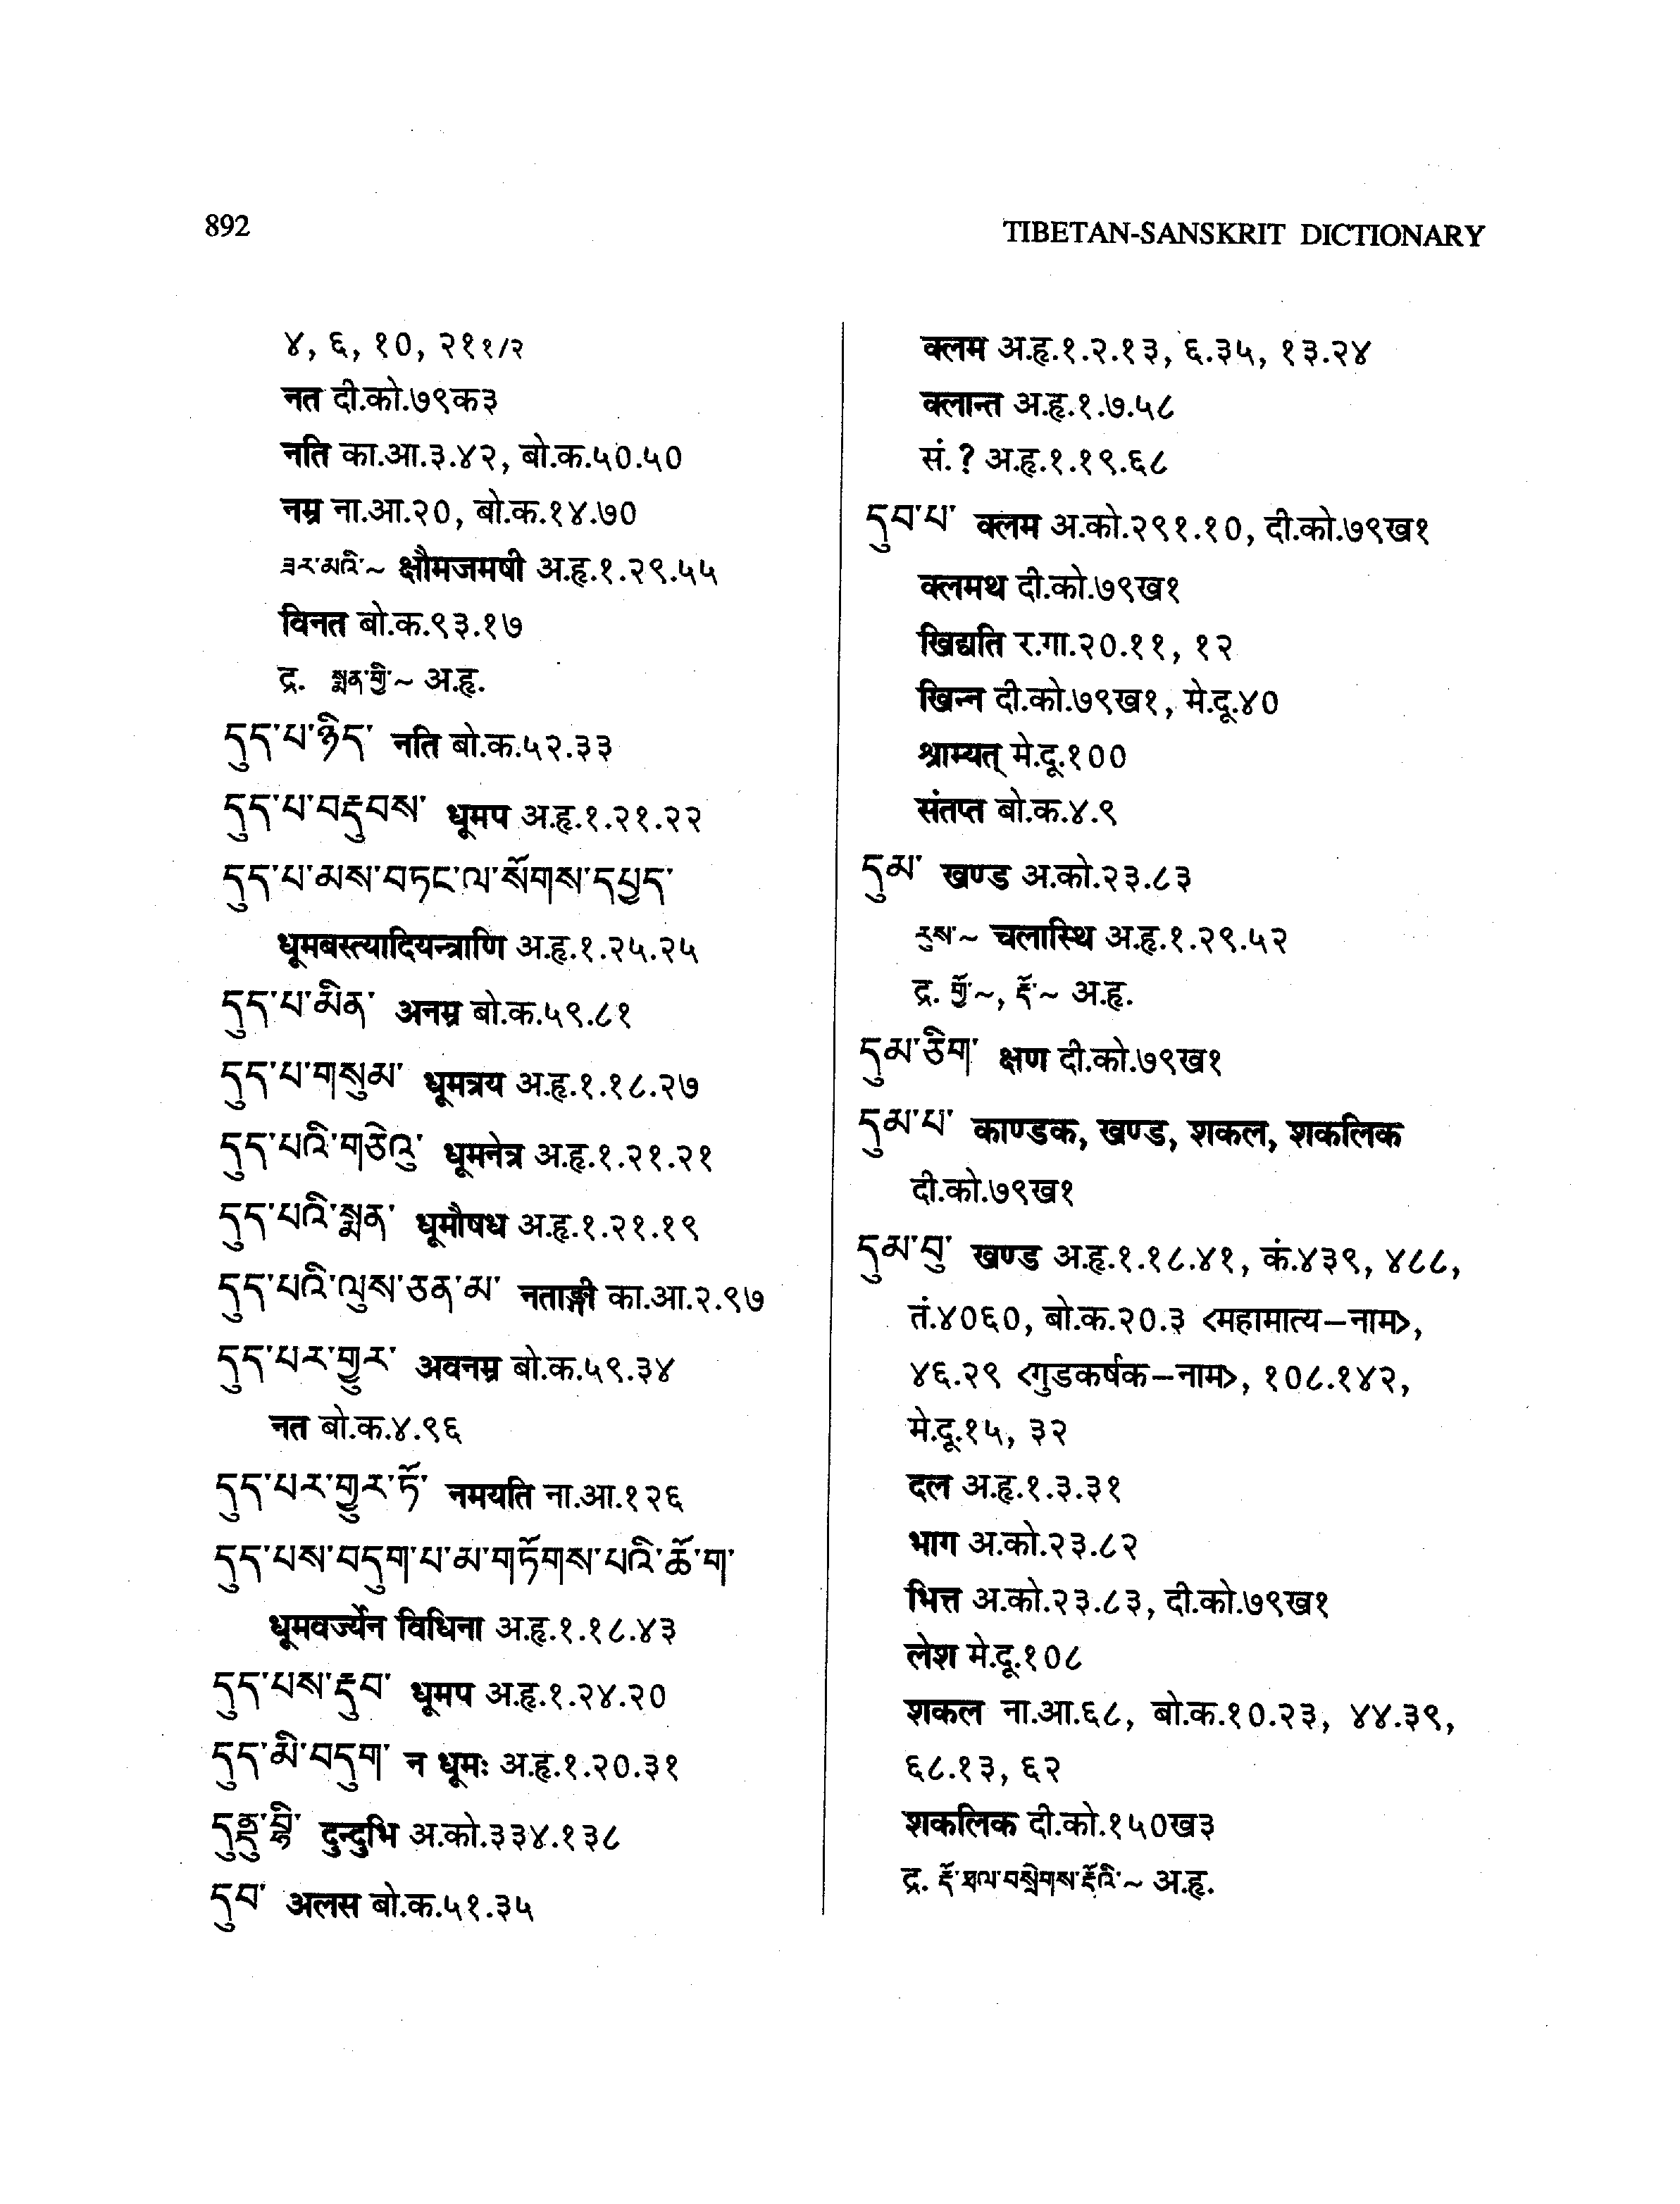 892
TIBETAN-SANSKRIT DICTIONARY
४, ६, १०, २११/२
नत दी.को.७९क३
नति का.आ.३.४२, बो.क.५०.५०
नम्र ना.आ.२०, बो.क.१४.७०
ཟར་མའི་~ क्षौमजमषी अ.हृ.१.२९.५५
विनत बो.क.९३.१७
द्र. སྨན་གྱི་~ अ.हृ.
དུད་པ་ཉིད་ नति बो.क.५२.३३
དུད་པ་བརྡུབས་ धूमप अ.हृ.१.२१.२२
དུད་པ་མས་བཏང་ལ་སོགས་དཔྱད་
धूमबस्त्यादियन्त्राणि अ.हृ.१.२५.२५
དུད་པ་མིན་ अनम्र बो.क.५९.८१
དུད་པ་གསུམ་ धूमत्रय अ.हृ.१.१८.२७
དུད་པའི་གཅེའུ་ धूमनेत्र अ.हृ.१.२१.२१
དུད་པའི་སྨན་ धूमौषध अ.हृ.१.२१.१९
དུད་པའི་ལུས་ཅན་མ་ नताङ्गी का.आ.२.९७
དུད་པར་གྱུར་ अवनम्र बो.क.५९.३४
नत बो.क.४.९६
དུད་པར་གྱུར་ཏོ་ नमयति ना.आ.१२६
དུད་པས་བདུག་པ་མ་གཏོགས་པའི་ཆོ་ག་
धूमवर्ज्येन विधिना अ.हृ.१.१८.४३
དུད་པས་རྡུབ་ धूमप अ.हृ.१.२४.२०
དུད་མི་བདུག་ न धूमः अ.हृ.१.२०.३१
དུནྡུ་བྷི་ दुन्दुभि अ.को.३३४.१३८
དུབ་ अलस बो.क.५१.३५
क्लम अ.हृ.१.२.१३, ६.३५, १३.२४
क्लान्त अ.हृ.१.७.५८
सं.? अ.हृ.१.१९.६८
དུབ་པ་ क्लम अ.को.२९१.१०, दी.को.७९ख१
क्लमथ दी.को.७९ख१
खिद्यति र.गा.२०.११, १२
खिन्न दी.को.७९ख१, मे.दू.४०
श्राम्यत् मे.दू.१००
संतप्त बो.क.४.९
དུམ་ खण्ड अ.को.२३.८३
རུས་~ चलास्थि अ.हृ.१.२९.५२
द्र. གྱོ་~, རྡོ་~ अ.हृ.
དུམ་ཅིག་ क्षण दी.को.७९ख१
དུམ་པ་ काण्डक, खण्ड, शकल, शकलिक
दी.को.७९ख१
དུམ་བུ་ खण्ड अ.हृ.१.१८.४१, कं.४३९, ४८८,
तं.४०६०, बो.क.२०.३ <महामात्य–नाम>,
४६.२९ <गुडकर्षक–नाम>, १०८.१४२,
मे.दू.१५, ३२
दल अ.हृ.१.३.३१
भाग अ.को.२३.८२
भित्त अ.को.२३.८३, दी.को.७९ख१
लेश मे.दू.१०८
शकल ना.आ.६८, बो.क.१०.२३, ४४.३९,
६८.१३, ६२
शकलिक दी.को.१५०ख३
द्र. རྡོ་ཐལ་བསྲེགས་རྡོའི་~ अ.हृ.